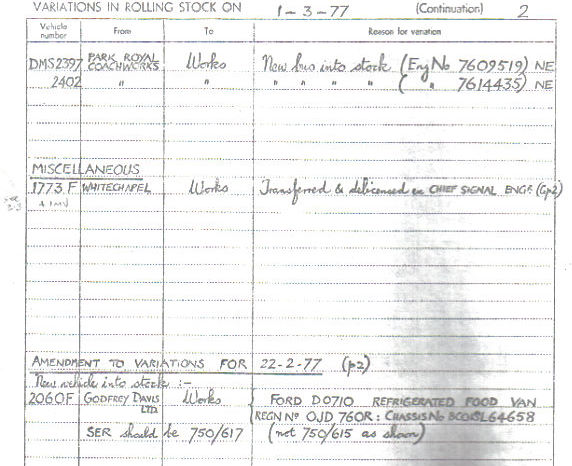 VARIATIONS IN ROLLING STOCK ON 1-3-77 (Continuation) 2
Vehicle number From To Reason for variation
DMS2397 PARK ROYAL COACHWORKS Works New bus into stock (Eng No 7609519) NE
2402 " " " " " " ( " 7614435) NE
MISCELLANEOUS
1773 F WHITECHAPEL Works Transferred & delicensed ex CHIEF SIGNAL ENGR (Gp2)
AMENDMENT TO VARIATIONS FOR 22-2-77 (p2)
New vehicle into stock :-
2060F GODFREY DAVIS LTD Works FORD D0710 REFRIGERATED FOOD VAN
REGN No OJD 760R : CHASSIS No
SER should be 750/617 (not 750/615 as shown)